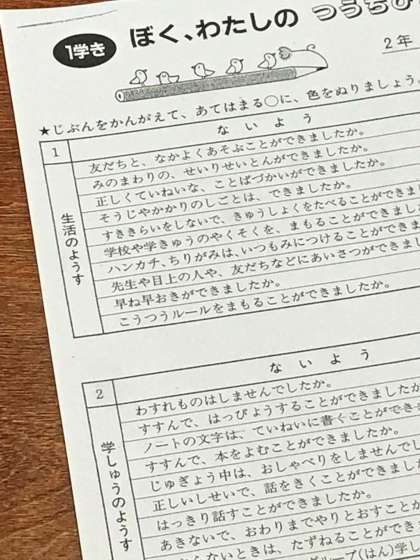 1学き
ぼく、わたしの つうちひ
2年
★じぶんをかんがえて、あてはまる○に、色をぬりましょう。
1
ないよう
生活のようす
友だちと、なかよくあそぶことができましたか。
みのまわりの、せいりせいとんができましたか。
正しくていねいな、ことばづかいができましたか。
そうじやかかりのしごとは、できましたか。
すききらいをしないで、きゅうしょくをたべることができま
学校や学きゅうのやくそくを、まもることができまし
ハンカチ、ちりがみは、いつもみにつけることができま
先生や目上の人や、友だちなどにあいさつができまし
早ね早おきができましたか。
こうつうルールをまもることができましたか。
2
ないよう
学しゅうのようす
わすれものはしませんでしたか。
すすんで、はっぴょうすることができましたか
ノートの文字は、ていねいに書くことができ
すすんで、本をよむことができましたか。
じゅぎょう中は、おしゃべりをしませんで
正しいしせいで、話をきくことができまし
はっきり話すことができましたか。
あきないで、おわりまでやりとおすことか
らないときは、たずねることができ
ループ(はん)学